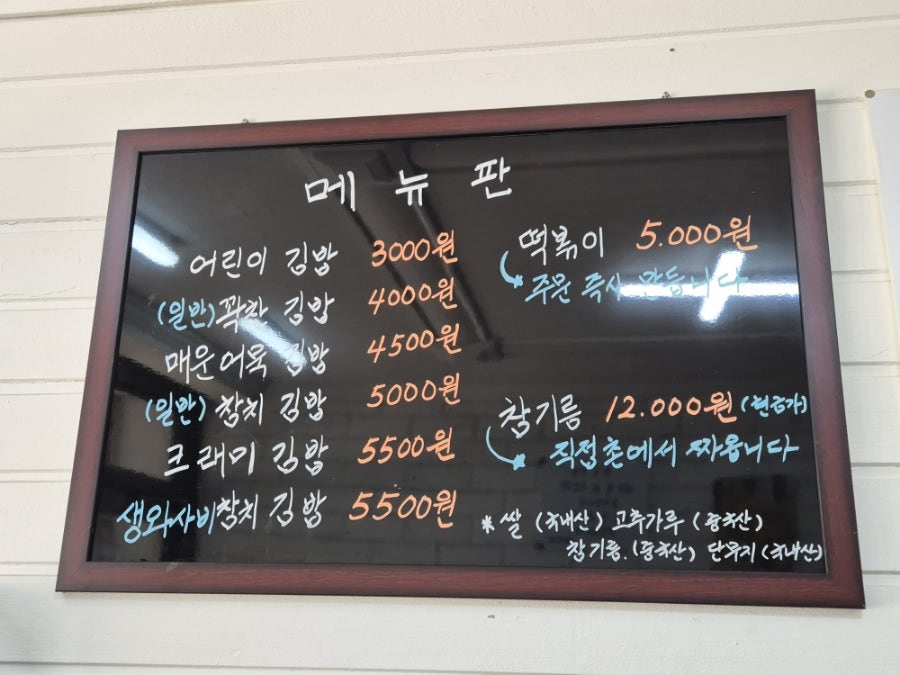 메뉴판
어린이 김밥 3000원
(일반)꽉찬 김밥 4000원
매운어묵 김밥 4500원
(일반) 참치 김밥 5000원
크래미 김밥 5500원
생와사비참치 김밥 5500원
떡볶이 5.000원
주문 즉시 만듭니다
참기름 12.000원 (현금가)
직접촌에서 짜옵니다
*쌀 (국내산) 고추가루 (중국산)
참기름.(중국산) 단무지(국내산)